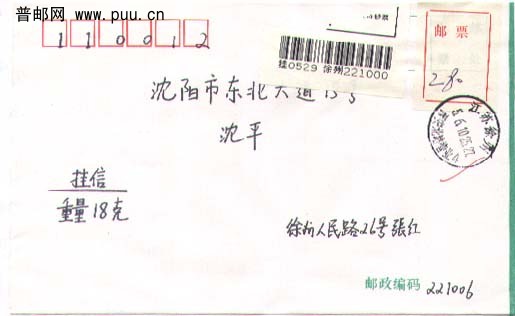 普邮网 www.puu.cn
110012
挂0529 徐州221000
邮票
2.80
沈阳市东北大道15号
沈平
江苏徐州
挂信
重量18克
徐州人民路26号張红
邮政编码 221006